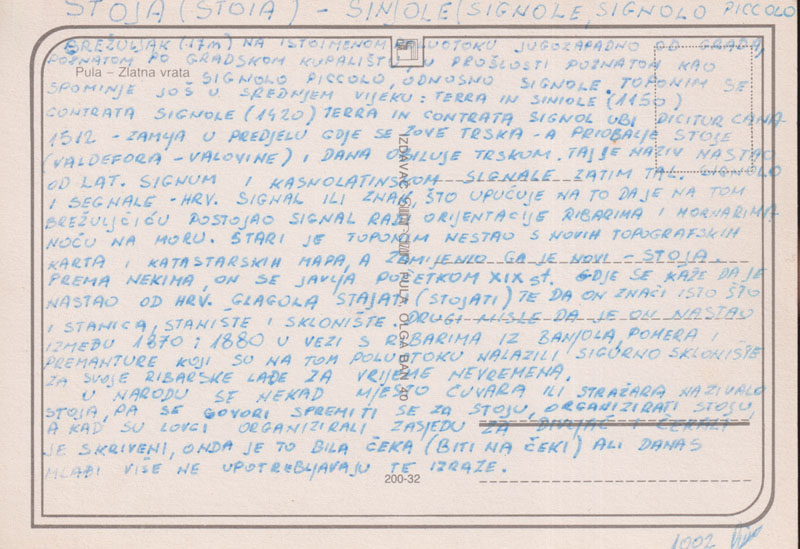 STOJA (STOIA) - SINJOLE, SIGNOLE, SIGNOLO PICCOLO
BREŽULJAK (17m) NA ISTOIMENOM POLUOTOKU JUGOZAPADNO OD GRADA,
POZNATOM PO GRADSKOM KUPALIŠTU, U PROŠLOSTI POZNATOM KAO
Pula – Zlatna vrata
SIGNOLO PICCOLO, ODNOSNO SIGNOLE. TOPONIM SE
SPOMINJE JOŠ U SREDNJEM VIJEKU: TERRA IN SINIOLE (1150)
CONTRATA SIGNOLE (1420) TERRA IN CONTRATA SIGNOL UBI DICITUR CANA
1512 - ZEMLJA U PREDJELU GDJE SE ZOVE TRSKA - A PRIOBALJE STOJE
(VALDEFORA - VALOVINE) I DANA OBILUJE TRSKOM. TAJ JE NAZIV NASTAO
OD LAT. SIGNUM I KASNOLATINSKOM SIGNALE ZATIM TAL. SIGNOLO
I SEGNALE - HRV. SIGNAL ILI ZNAK, ŠTO UPUĆUJE NA TO DA JE NA TOM
BREŽULJČIĆU POSTOJAO SIGNAL RADI ORIJENTACIJE RIBARIMA I MORNARIMA
NOĆU NA MORU. STARI JE TOPONIM NESTAO S NOVIH TOPOGRAFSKIH
KARTA I KATASTARSKIH MAPA, A ZAMIJENIO GA JE NOVI - STOJA.
PREMA NEKIMA, ON SE JAVLJA POČETKOM XIX st. GDJE SE KAŽE DA JE
NASTAO OD HRV. GLAGOLA STAJATI (STOJATI) TE DA ON ZNAČI ISTO ŠTO
I STANICA, STANIŠTE I SKLONIŠTE. DRUGI MISLE DA JE ON NASTAO
IZMEĐU 1870 i 1880 U VEZI S RIBARIMA IZ BANJOLA, POMERA I
PREMANTURE KOJI SU NA TOM POLUOTOKU NALAZILI SIGURNO SKLONIŠTE
ZA SVOJE RIBARSKE LAĐE ZA VRIJEME NEVREMENA.
U NARODU SE NEKAD MJESTO ČUVARA ILI STRAŽARA NAZIVALO
STOJA, PA SE GOVORI SPREMITI SE ZA STOJU, ORGANIZIRATI STOJU,
A KAD SU LOVCI ORGANIZIRALI ZASJEDU ZA DIVLJAČ I ČEKALI
JE SKRIVENI, ONDA JE TO BILA ČEKA (BITI NA ČEKI) ALI DANAS
MLAĐI VIŠE NE UPOTREBLJAVAJU TE IZRAZE.
200-32
IZDAVAČ PULA, OLGA BAN 40
1002